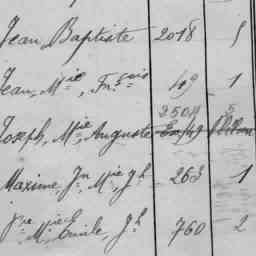 Jean Baptiste 2018 5
Jean, Mie, Fn.çois 49 1
2504 5
Joseph, Mie, Auguste
Maxime, Jn, Mie, Jh 263 1
Mie Emile, Jh 760 2